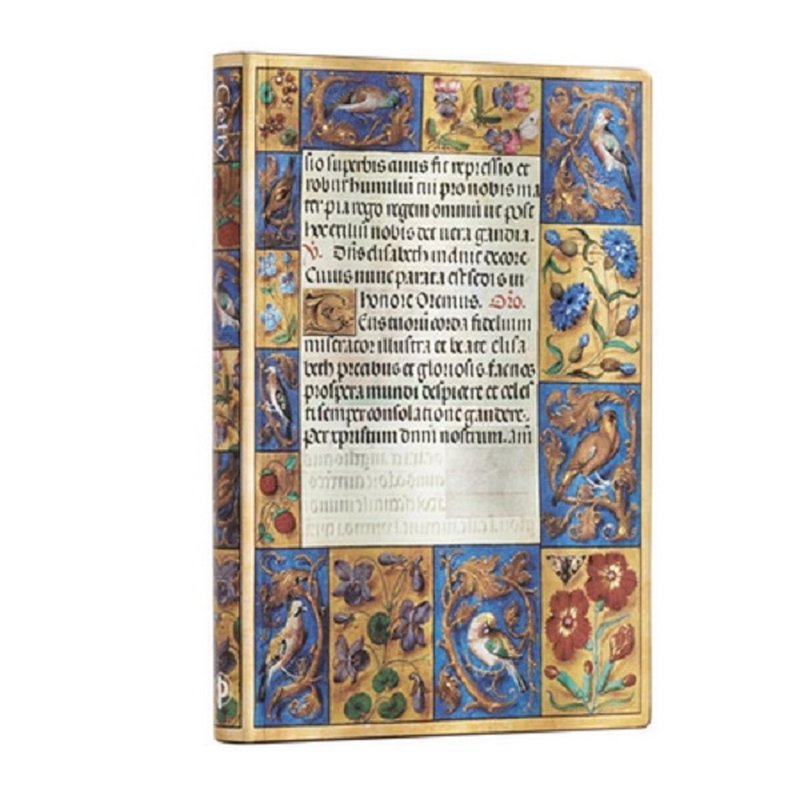 sio superbis cuius fit repressio et
robur humiliū cui pro nobis ma
ter pia rogo regem omniū ut post
hoc exiliū nobis det uera gaudia.
V. Dn̄s elisabeth induit decore
Cuius nunc parata est sedis in
honore Oremus. Oŕo.
Deus tuorū corda fidelium
miserator illustra et beate elisa
beth precibus et gloriosis fac nos
prospera mundi despicere et celes
ti semper consolatione gaudere.
Per xpristum dnm̄ nostrum. am̄